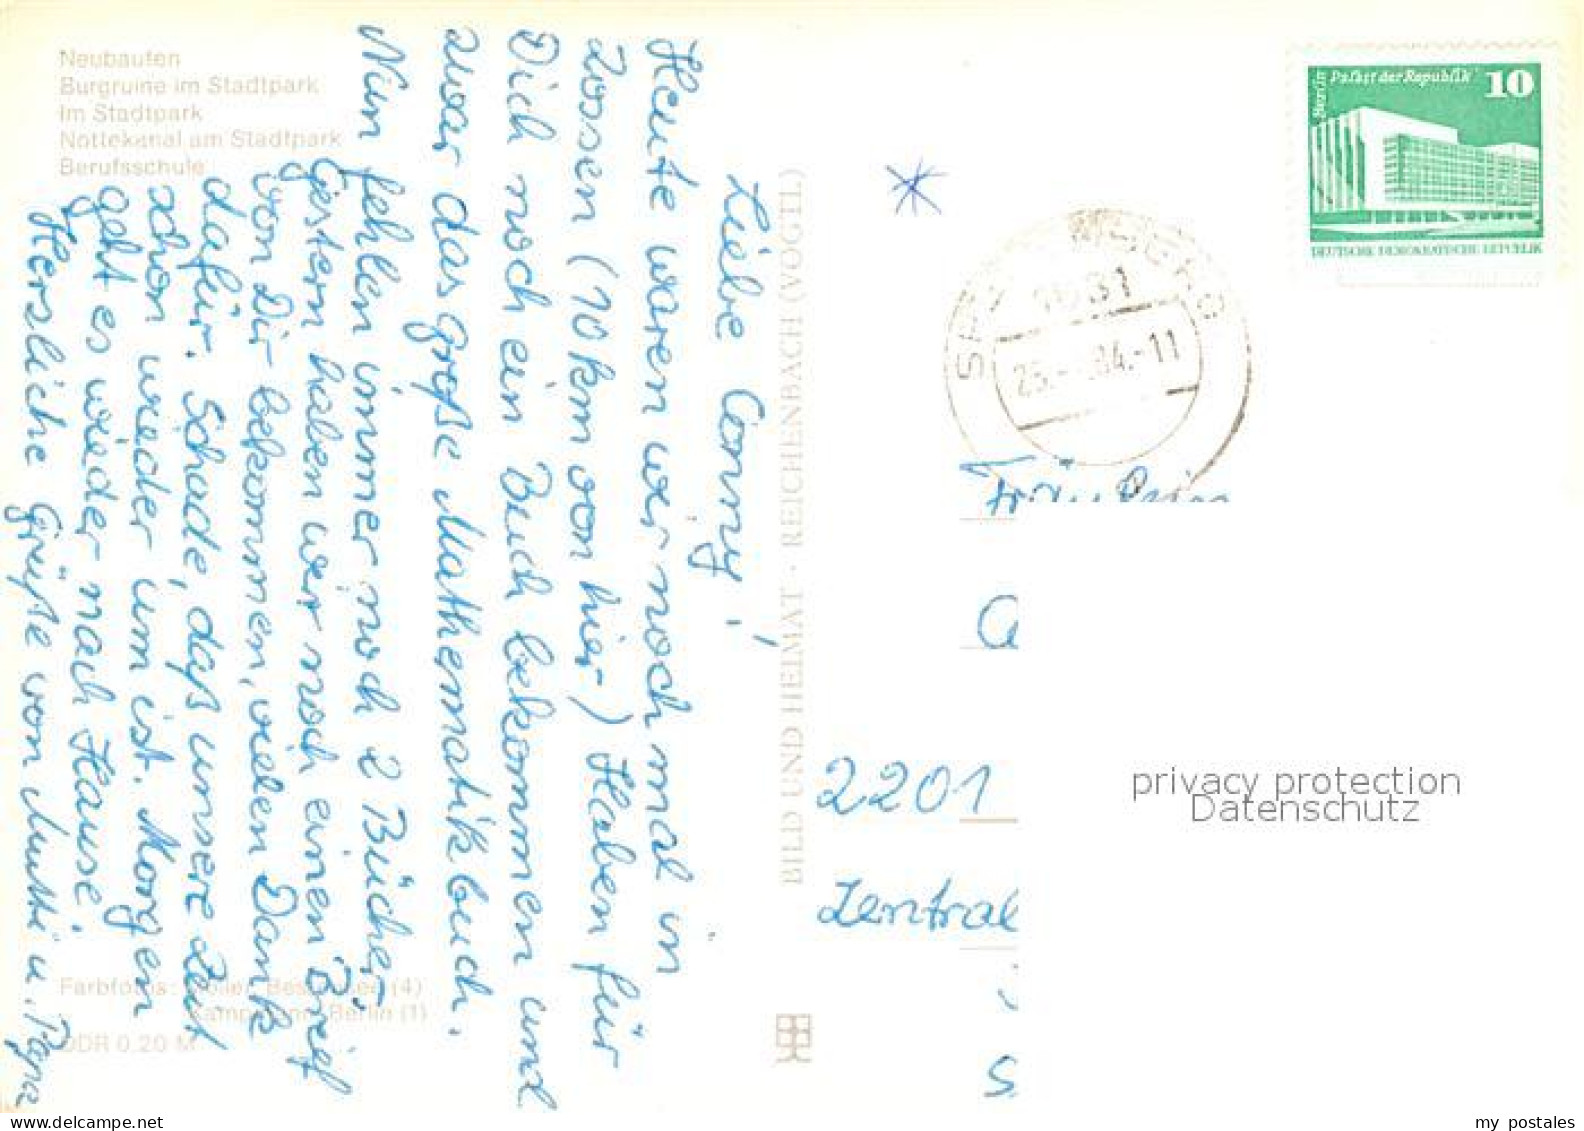 Neubauten
Burgruine im Stadtpark
Im Stadtpark
Nottekanal am Stadtpark
Berufsschule
Liebe Conny!
Heute waren wir noch mal in
Zossen (10 km von hier) Haben für
Dich noch ein Buch bekommen und
zwar das große Mathematikbuch.
Nun fehlen immer noch 2 Bücher
Gestern haben wir noch einen Brief
von Dir bekommen, vielen Dank
dafür. Schade, daß unsere Zeit
schon wieder um ist. Morgen
geht es wieder nach Hause.
Herzliche Grüße von Mutti u. Papa
Farbfotos: Bestensee (4)
Berlin (1)
DDR 0,20 M
BILD UND HEIMAT · REICHENBACH (VOGTL)
Berlin Palast der Republik
10
DEUTSCHE DEMOKRATISCHE REPUBLIK
84.-11
2201
Zentral
privacy protection
Datenschutz
my postales